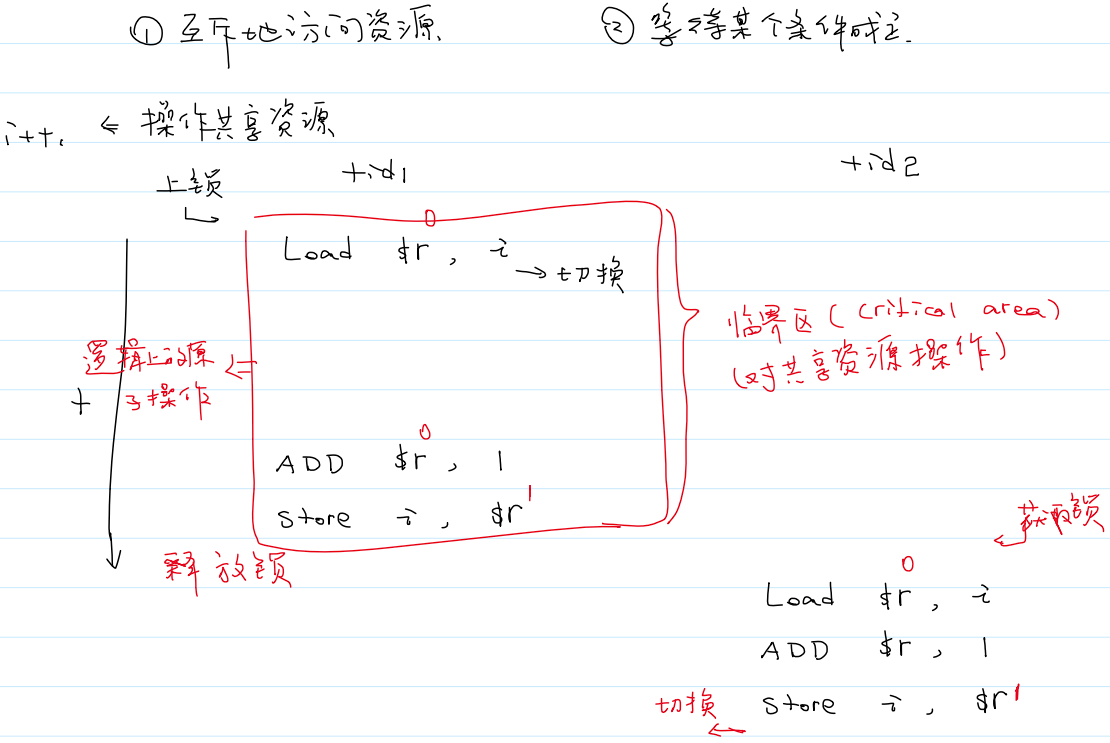 ① 互斥地访问资源 ② 等待某个条件成立.
i++. ⇐ 操作共享资源
上锁 tid1 tid2
0
Load $r , i
→ 切换
临界区 ( critical area )
(对共享资源操作)
逻辑上的原
子操作
t
0
ADD $r , 1
1
store i , $r
获取锁
释放锁
0
Load $r , i
ADD $r , 1
切换 store i , $r 1